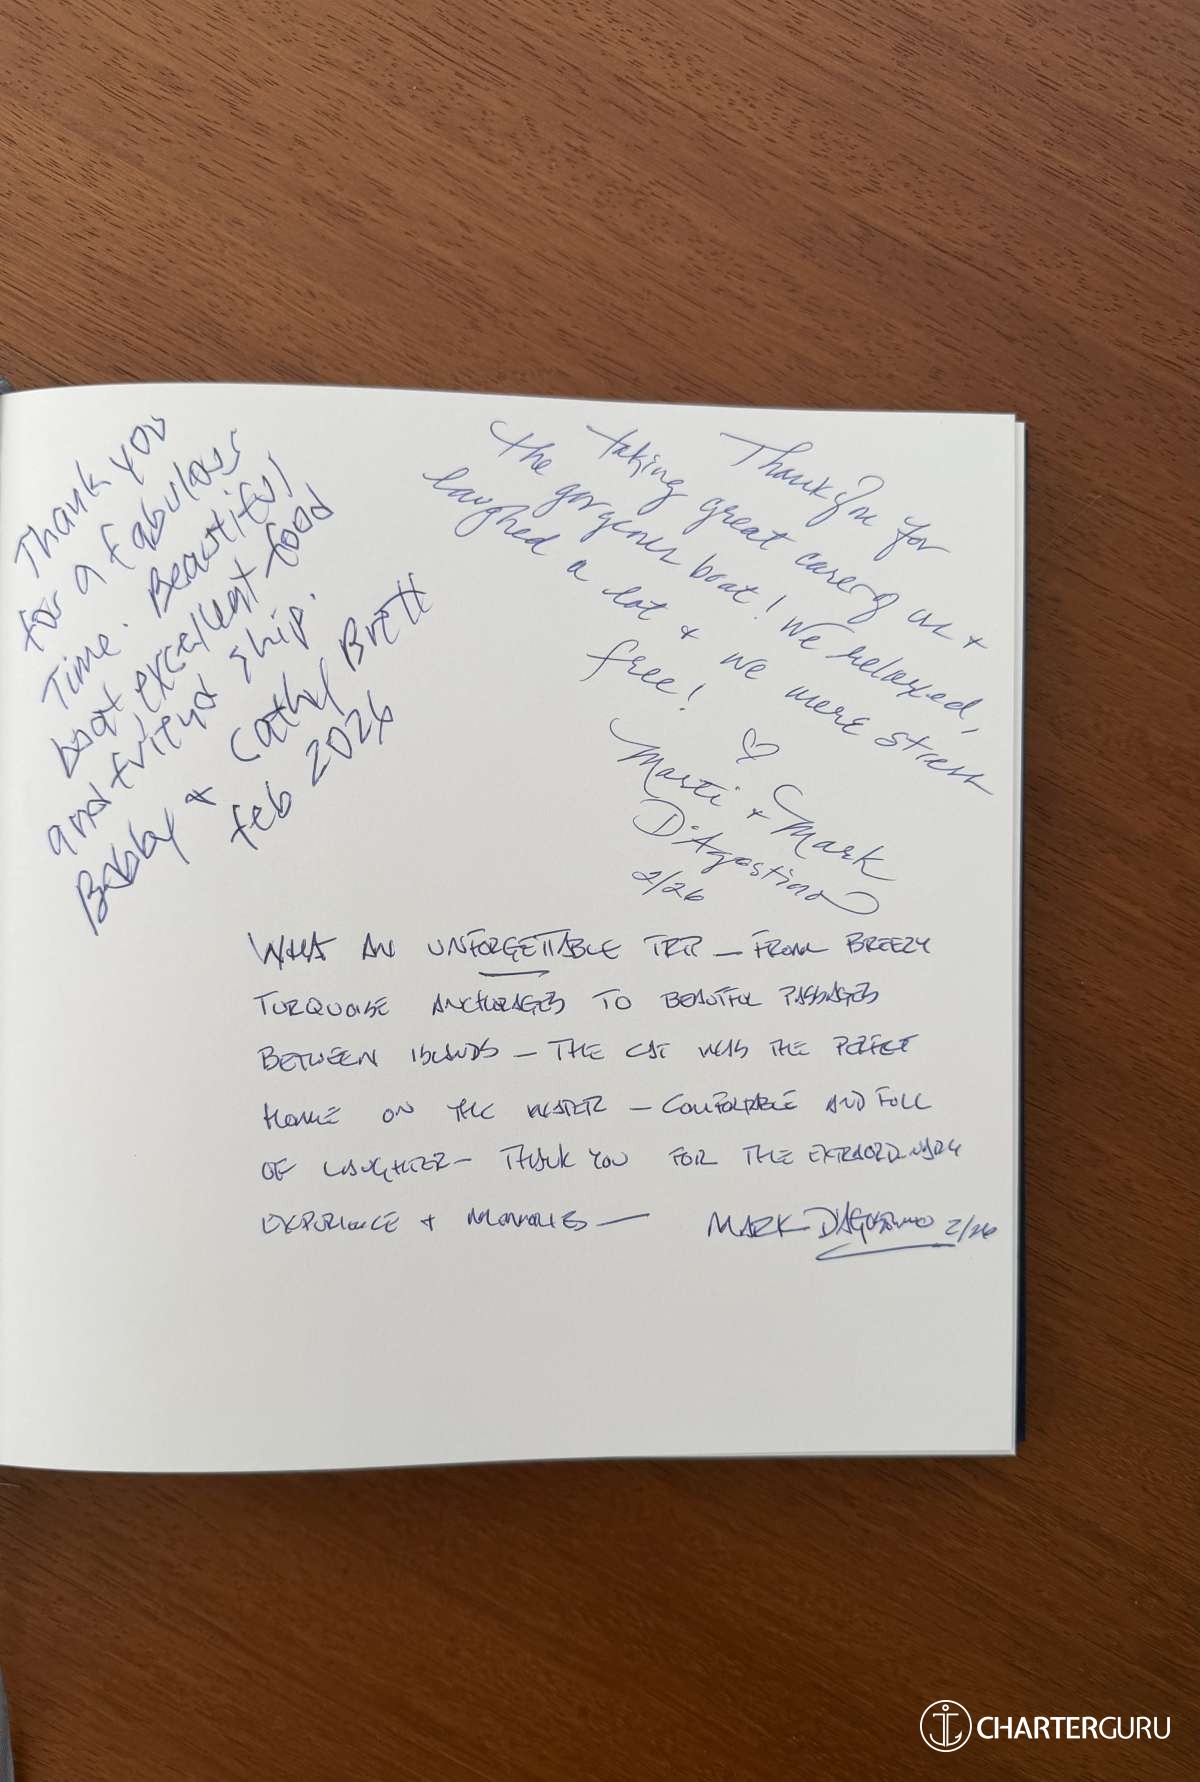 Thank you
for a fabulous
Time. Beautiful
boat, excellent food
and friend ship.
Bobby & Cathy Brett
feb 2026
Thank you for
taking great care of us &
the gorgeous boat! We relaxed,
laughed a lot & we were stress
free!
♡
Marti & Mark
D'Agostino
2/26
WHAT AN UNFORGETTABLE TRIP — FROM BREEZY
TURQUOISE ANCHORAGES TO BEAUTIFUL PASSAGES
BETWEEN ISLANDS — THE CAT WAS THE PERFECT
HOME ON THE WATER — COMFORTABLE AND FULL
OF LAUGHTER — THANK YOU FOR THE EXTRAORDINARY
EXPERIENCE & MEMORIES — MARK D'AGOSTINO 2/26
CHARTERGURU